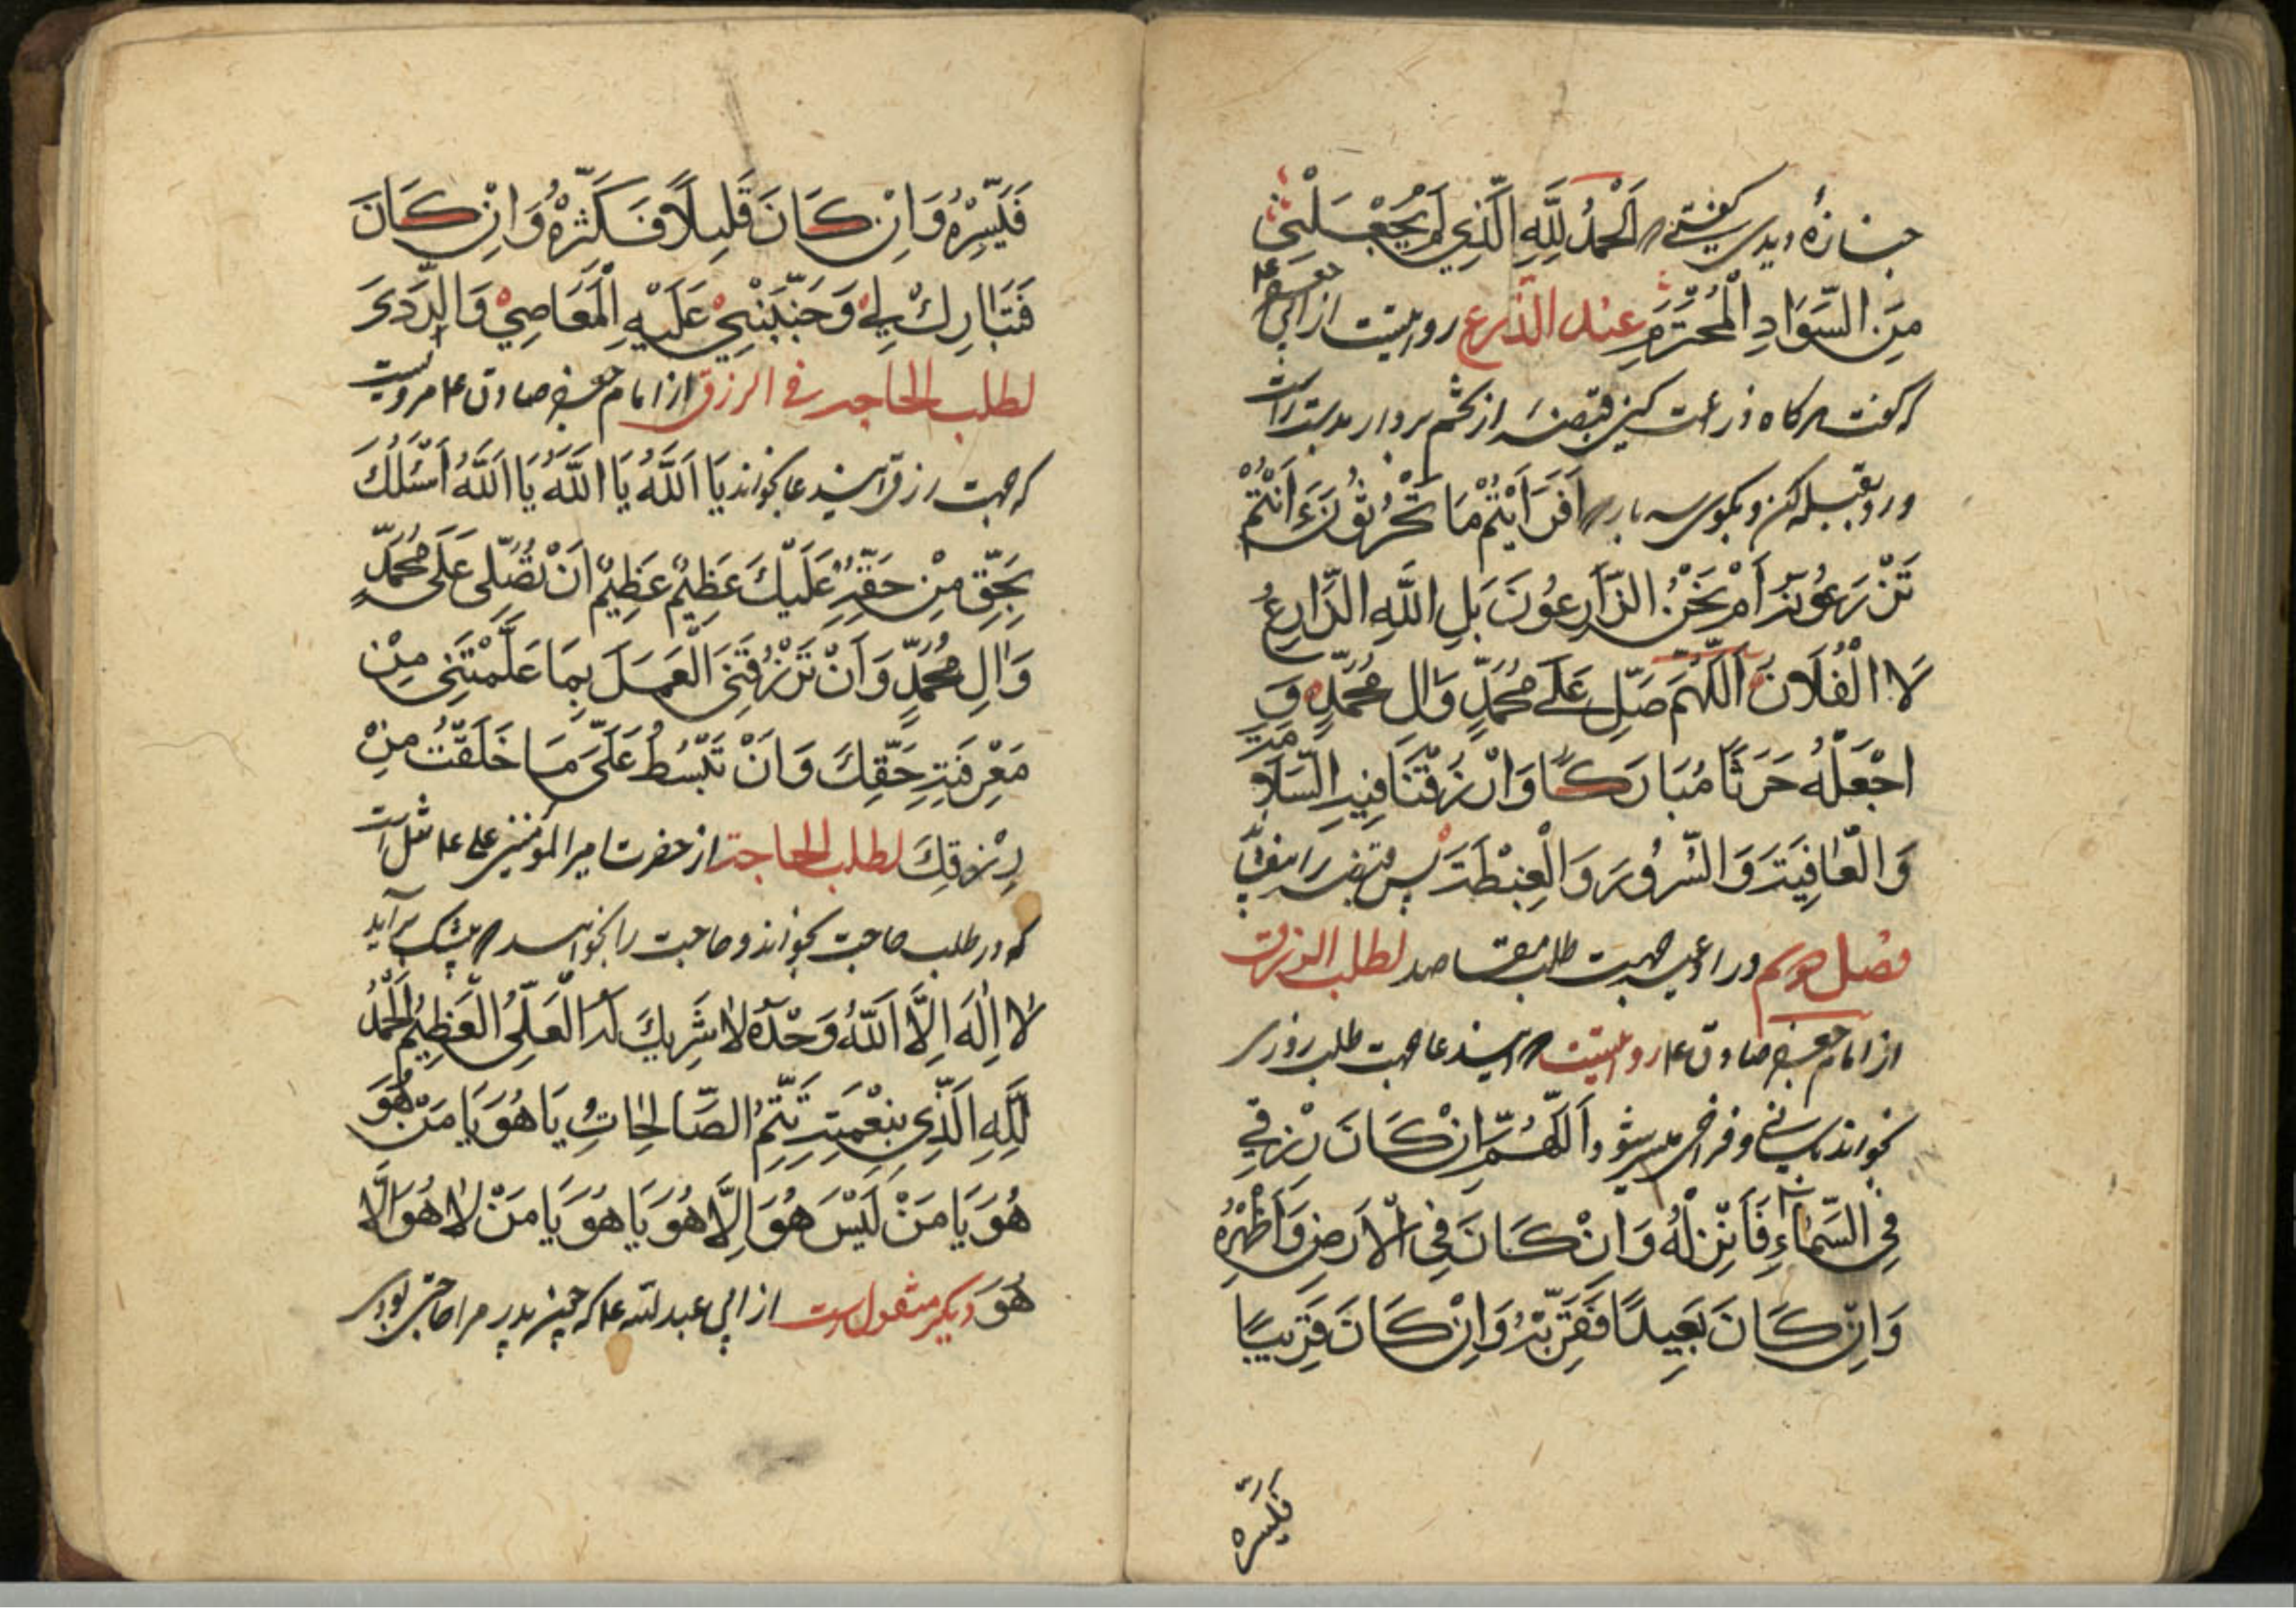 جنازهٔ دیدی گفتی اَلْحَمْدُ لِلَّهِ الَّذِي لَمْ يَجْعَلْنِي
مِنَ السَّوَادِ الْمُخْتَرَمِ عند الذرع روایتست از ابی جعفر ع
که گفت هرگاه زراعت کنی قبضهٔ از تخم بردار بدست راست
و رو بقبله کن و بگوی سه بار اَفَرَاَيْتُمْ مَا تَحْرُثُونَ ءَاَنْتُمْ
تَزْرَعُونَهُ اَمْ نَحْنُ الزَّارِعُونَ بَلِ اللَّهِ الزَّارِعُ
لَا الْفُلَانُ اَللّهُمَّ صَلِّ عَلَى مُحَمَّدٍ وَالِ مُحَمَّدٍ وَ
اجْعَلْهُ حَرَثًا مُبَارَكًا وَارْزُقْنَا فِيهِ السَّلَامَةَ
وَالْعَافِيَةَ وَالسُّرُورَ وَالْغِبْطَةَ پس قبضه را بیفشان
فصل دویم در ادعیه جهت طلب مقاصد لطلب الرزق
از امام جعفر صادق ع روایتست که این دعا جهت طلب روزی
بخواند بآسانی و فراخی میسر شود اَللّهُمَّ اِنْ كَانَ رِزْقِي
فِي السَّمَاءِ فَاَنْزِلْهُ وَاِنْ كَانَ فِي الْاَرْضِ وَاَظْهِرْهُ
وَاِنْ كَانَ بَعِيدًا فَقَرِّبْهُ وَاِنْ كَانَ قَرِيبًا
فیسره
فَيَسِّرْهُ وَاِنْ كَانَ قَلِيلًا فَكَثِّرْهُ وَاِنْ كَانَ
فَتَبَارِكْ لِي وَجَنِّبْنِي عَلَيْهِ الْمَعَاصِي وَالرَّدَى
لطلب الحاجه فی الرزق از امام جعفر صادق ع مرویست
که جهت رزق این دعا بخواند يَا اَللَّهُ يَا اَللَّهُ يَا اَللَّهُ اَسْئَلُكَ
بِحَقِّ مِنْ حَقِّهِ عَلَيْكَ عَظِيمٌ عَظِيمٌ اَنْ تُصَلِّى عَلَى مُحَمَّدٍ
وَالِ مُحَمَّدٍ وَاَنْ تَرْزُقَنِي الْعَمَلَ بِمَا عَلَّمْتَنِي مِنْ
مَعْرِفَةِ حَقِّكَ وَاَنْ تَبْسُطَ عَلَىَّ مَا خَلَقْتَ مِنْ
رِزْقِكَ لطلب الحاجة از حضرت امیرالمؤمنین علی ع است
که در طلب حاجت بخواند و حاجت را بخواهد که بیشک برآید
لَا اِلٰهَ اِلَّا اللَّهُ وَحْدَهُ لَا شَرِيكَ لَهُ الْعَلِيُّ الْعَظِيمُ اَلْحَمْدُ
لِلَّهِ الَّذِي بِنِعْمَتِهِ تَتِمُّ الصَّالِحَاتُ يَا هُوَ يَا مَنْ هُوَ
هُوَ يَا مَنْ لَيْسَ هُوَ اِلَّا هُوَ يَا هُوَ يَا مَنْ لَا هُوَ اِلَّا
هُوَ دیگر منقول است از ابی عبدالله ع که چون پدر مرا حاجتی بودی